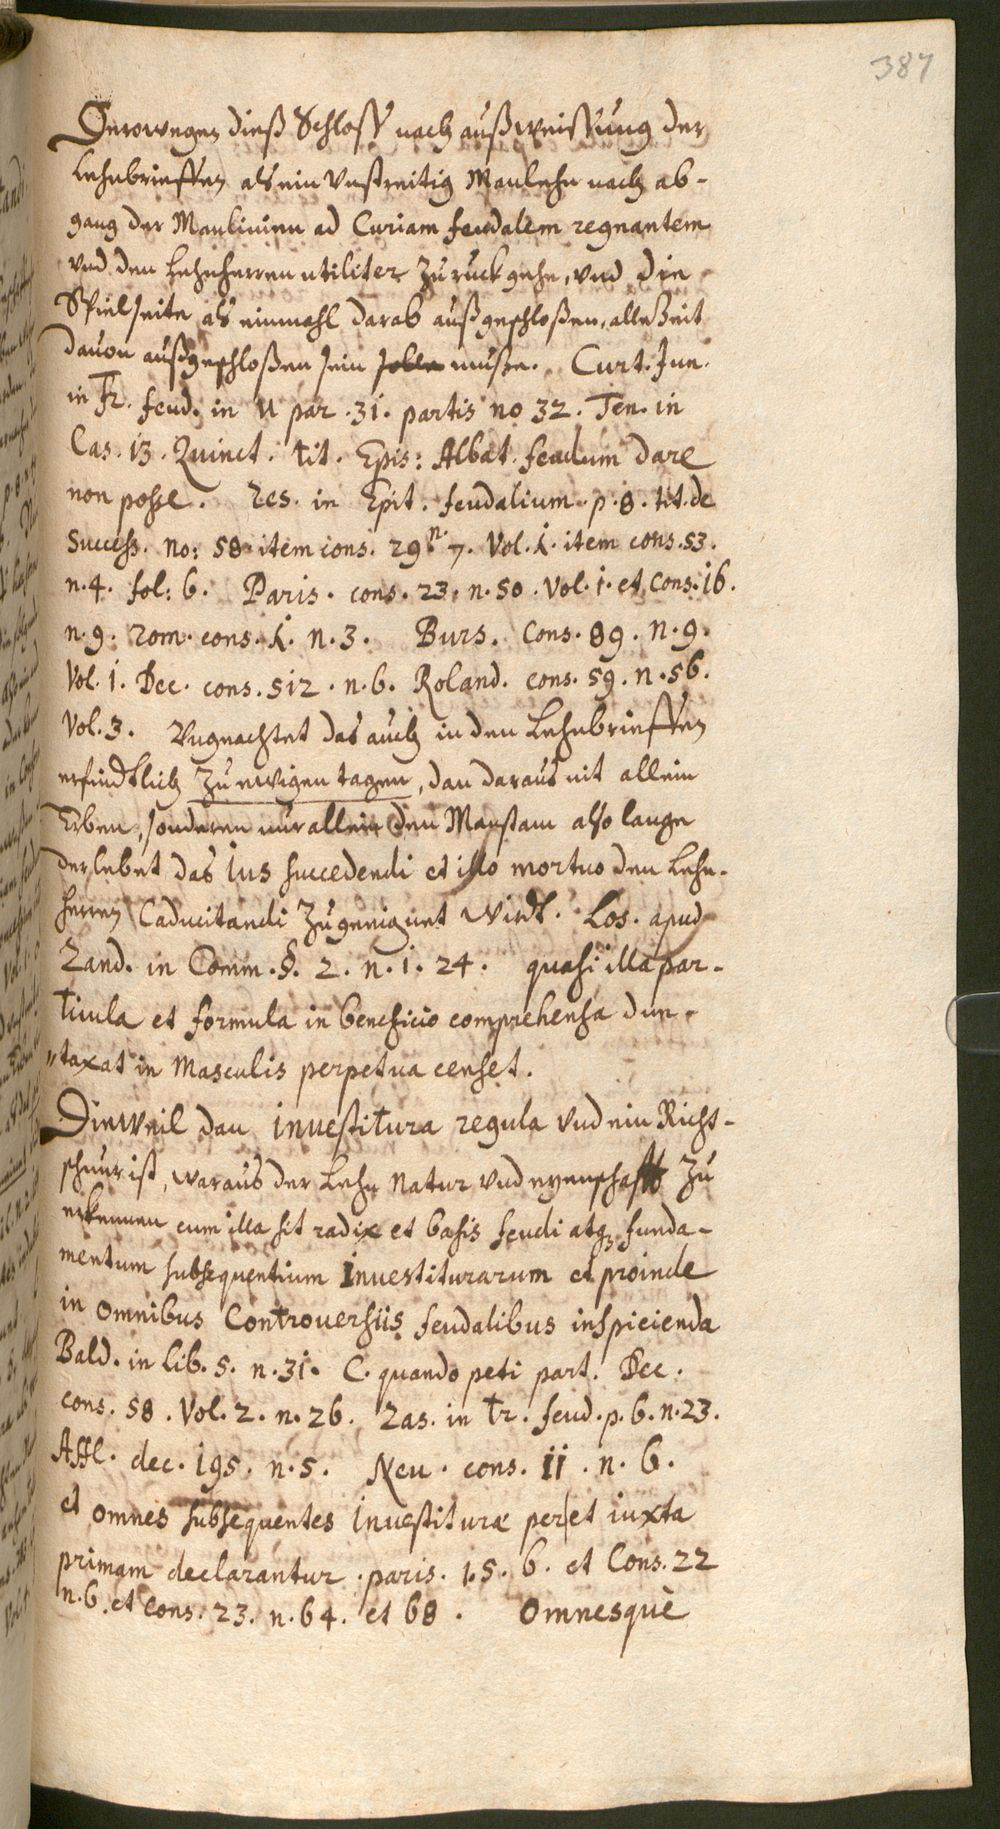 387
Derowegen dieß Schloss nach außweissung der
Lehnbrieffen als ein Vnstreitig Manlehn nach ab-
gang der Manlinien ad Curiam feudalem regnantem
vnd den Lehnherren utiliter zu ruck gehe, vnd die
Spielseite als einmahl darab außgeschloßen, alleßeit
dauon außgeschloßen sein solle muße. Curt. Jun.
in Tr. feud. in U par. 31. partis no 32. Ten. in
Cas. 13. Quinct. tit. Epis: Albat. feudum dare
non posse. Zes. in Epit. feudalium. p. 8. tit. de
Success. no: 58 item cons. 29. n. 7. Vol. 1. item cons. 53.
n. 4. fol: 6. Paris. cons. 23. n. 50. Vol. 1. et Cons. 16.
n. 9. Rom. cons. 1. n. 3. Burs. Cons. 89. n. 9.
Vol. 1. Dec. cons. 512. n. 6. Roland. cons. 59. n. 56.
Vol. 3. Vngeachtet das auch in den Lehnbrieffen
erfindtlich zu ewigen tagen, dan daraus nit allein
Erben, sonderen nur allein den Manstam also lange
der lebet das ius succedendi et illo mortuo den Lehn-
herren Caducitandi zugeeignet wirdt. Los. apud
Zand. in Comm. §. 2. n. 1. 24. quasi illa par-
ticula et formula in beneficio comprehensa dun-
"taxat in Masculis perpetua censet.
Dieweil dan investitura regula vnd ein Richt-
schnur ist, waraus der Lehn Natur vnd eyenschafft zu
erkennen cum illa sit radix et basis feudi atq; funda-
mentum subsequentium Investiturarum et proinde
in omnibus Controuersiis feudalibus inspicienda
Bald. in Lib. 5. n. 31. C. quando peti part. Dec.
cons. 58. Vol. 2. n. 26. Zas. in tr. feud. p. 6. n. 23.
Affl. dec. 195. n. 5. Neu. cons. 11. n. 6.
et omnes subsequentes Investituræ per et iuxta
primam declarantur. paris. 1. 5. 6. et Cons. 22
n. 6. et cons. 23. n. 64. et 68. Omnesquè